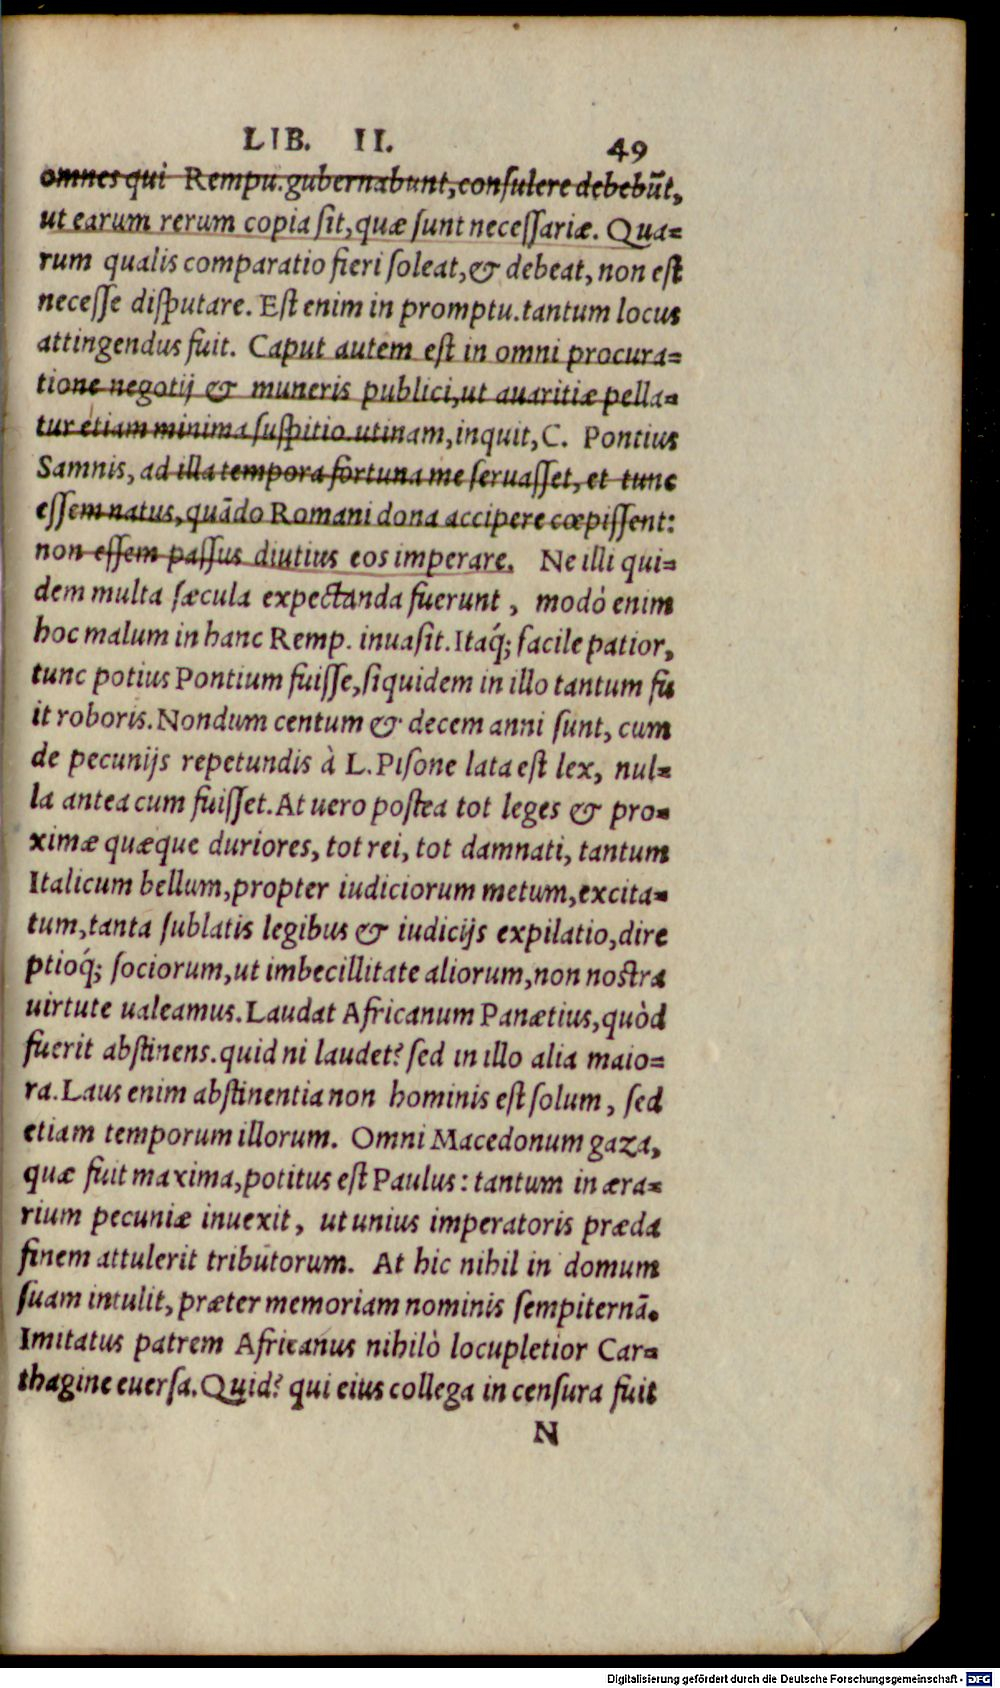 LIB. II. 49
omnes qui Rempu. gubernabunt, consulere debebūt,
ut earum rerum copia sit, quæ sunt necessariæ. Qua=
rum qualis comparatio fieri soleat, & debeat, non est
necesse disputare. Est enim in promptu. tantum locus
attingendus fuit. Caput autem est in omni procura=
tione negotij & muneris publici, ut auaritiæ pella=
tur etiam minima suspitio. utinam, inquit, C. Pontius
Samnis, ad illa tempora fortuna me seruasset, et tunc
essem natus, quādo Romani dona accipere cœpissent:
non essem passus diutius eos imperare. Ne illi qui=
dem multa sæcula expectanda fuerunt, modò enim
hoc malum in hanc Remp. inuasit. Itaq́; facile patior,
tunc potius Pontium fuisse, siquidem in illo tantum fu
it roboris. Nondum centum & decem anni sunt, cum
de pecunijs repetundis à L. Pisone lata est lex, nul=
la antea cum fuisset. At uero postea tot leges & pro=
ximæ quæque duriores, tot rei, tot damnati, tantum
Italicum bellum, propter iudiciorum metum, excita=
tum, tanta sublatis legibus & iudicijs expilatio, dire
ptioq́; sociorum, ut imbecillitate aliorum, non nostra
uirtute ualeamus. Laudat Africanum Panætius, quòd
fuerit abstinens. quid ni laudet? sed in illo alia maio=
ra. Laus enim abstinentia non hominis est solum, sed
etiam temporum illorum. Omni Macedonum gaza,
quæ fuit maxima, potitus est Paulus: tantum in æra=
rium pecuniæ inuexit, ut unius imperatoris præda
finem attulerit tributorum. At hic nihil in domum
suam intulit, præter memoriam nominis sempiternā.
Imitatus patrem Africanus nihilò locupletior Car=
thagine euersa. Quid? qui eius collega in censura fuit
N
Digitalisierung gefördert durch die Deutsche Forschungsgemeinschaft - DFG